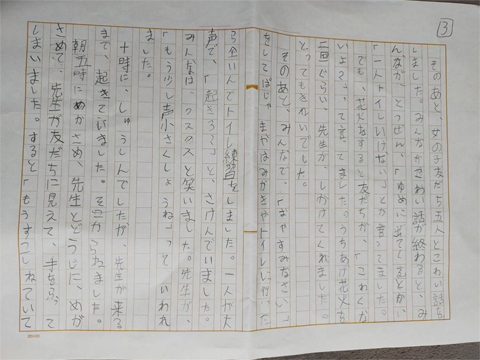 ③
そのあと、女の子友だち五人とこわい話を
しました。みんながこわい話が終わると、み
んなが、とつぜん、「ゆめに出てくるとか、
「一人トイレいけない」とか言てました。
でも、花火をすると友だちが、「こわくな
いよ」って言てました。うちあげ花火も
二回ぐらい、先生が、しかけてくれました。
とってもきれいでした。
そのあと、みんなで、「おやすみなさい」
をしてぱじゃまやはみがきやトイレにいき、
全いんでトイレ練習をしました。一人が大
声で、「起きろ」と、さけんでいました。
みんなは、クスクスと笑いました。先生が、
「もう少し声小さくしようね」っていわれ
ました。
十時に、しゅうしんでしたが、先生が来る
まで、起きていました。そこからねました。
朝五時にめがさめ、先生とどうじに、めが
さめて、先生が友だちに見えて、手をふって
しまいました。すると「もうすこしねていて